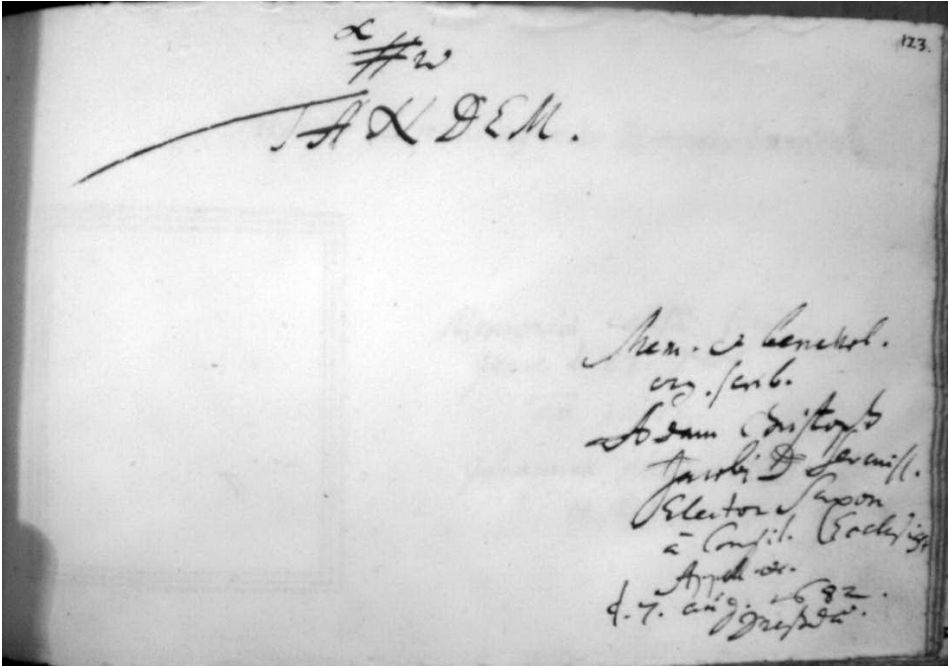 123.
α
# ω
TANDEM.
Mem. et benevol.
erg. scrib.
Adam Christoph
Jacobi D Sereniss.
Elector Saxon
à Consil. Ecclesiast
Appell. et.
d. 7. aug. 1682.
Dresdæ.